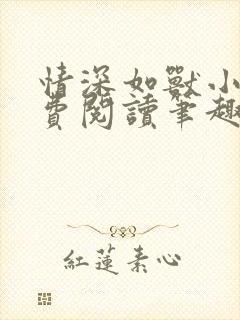 情深如獸小
費閱讀筆趣
紅蓮素心